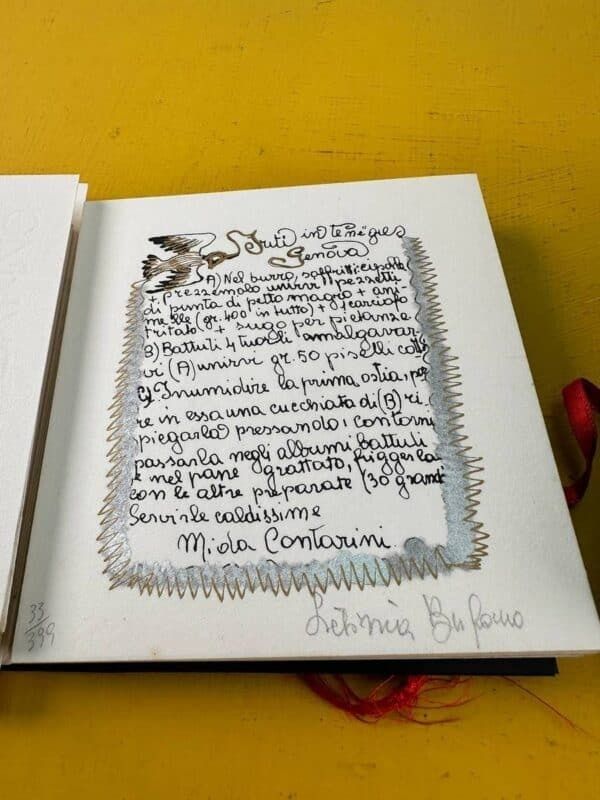 Fritti in te negie
Genova
A) Nel burro, soffritti: cipolla
+ prezzemolo unirvi pezzetti
di punta di petto magro + ani-
melle (gr. 400 in tutto) + 1 carciofo
tritato + sugo per pietanze
B) Battuti 4 tuorli amalgamar-
vi (A) unirvi gr. 50 piselli cotti
C) Inumidire la prima ostia, por
re in essa una cucchiata di (B) ri
piegarla pressando i contorni
passarla negli albumi battuti
e nel pane grattato, friggerla
con le altre preparate (30 grandi
Servirle caldissime
Mida Contarini
33/399